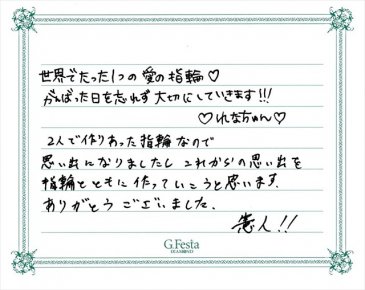 世界でたった1つの愛の指輪♡
がんばった日を忘れず大切にしていきます!!!
♡れなちゅん♡
2人で作りあった指輪なので
思い出になりましたし これからの思い出を
指輪とともに作っていこうと思います。
ありがとうございました。
憲人!!
G.Festa